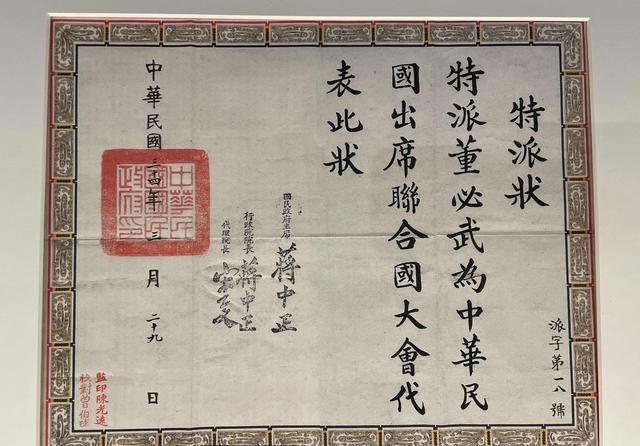 特派狀
特派董必武為中華民
國出席聯合國大會代
表此狀
國民政府主席 蔣中正
行政院院長 蔣中正
代理院長 宋子文
中華民國三十四年三月二十九日
派字第一八號
監印陳光遠
校對曾伯